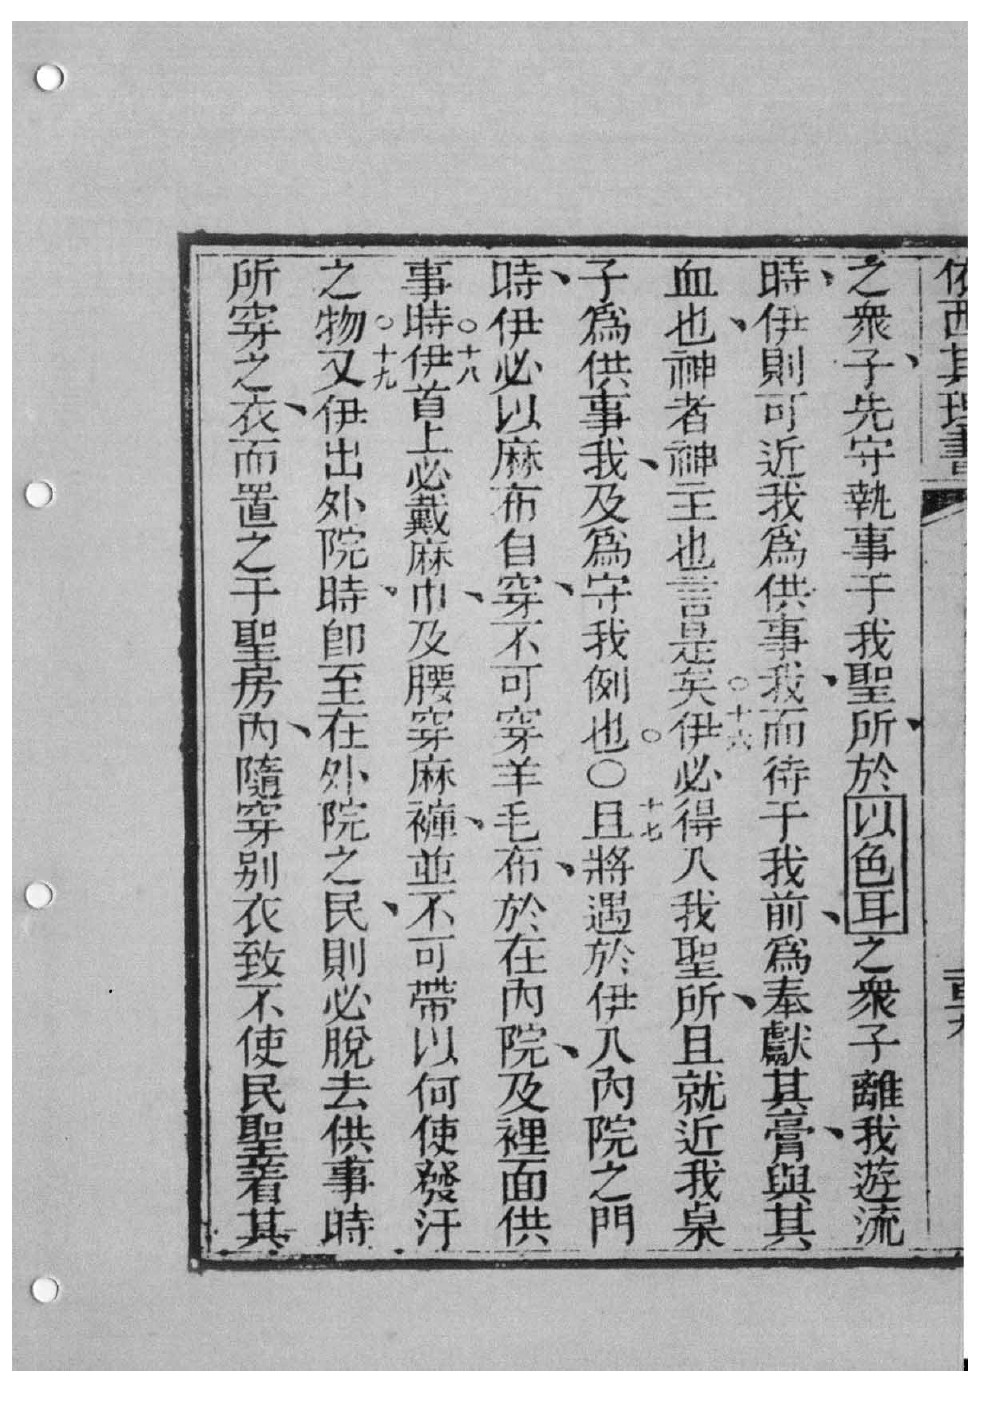 依西其理書
之衆子、先守執事于我聖所、於以色耳之衆子離我遊流
時、伊則可近我爲供事我、而待于我前、爲奉獻其膏、與其
血也、神者神主也言是矣○十六伊必得入我聖所、且就近我桌
子爲供事我、及爲守我例也○○十七且將遇於伊入內院之門
時、伊必以麻布自穿、不可穿羊毛布、於在內院、及裡面供
事時○十八伊首上必戴麻巾、及腰穿麻褲、並不可帶以何使發汗
之物○十九又伊出外院時、卽至在外院之民、則必脫去供事時
所穿之衣、而置之于聖房內、隨穿别衣致不使民聖着其